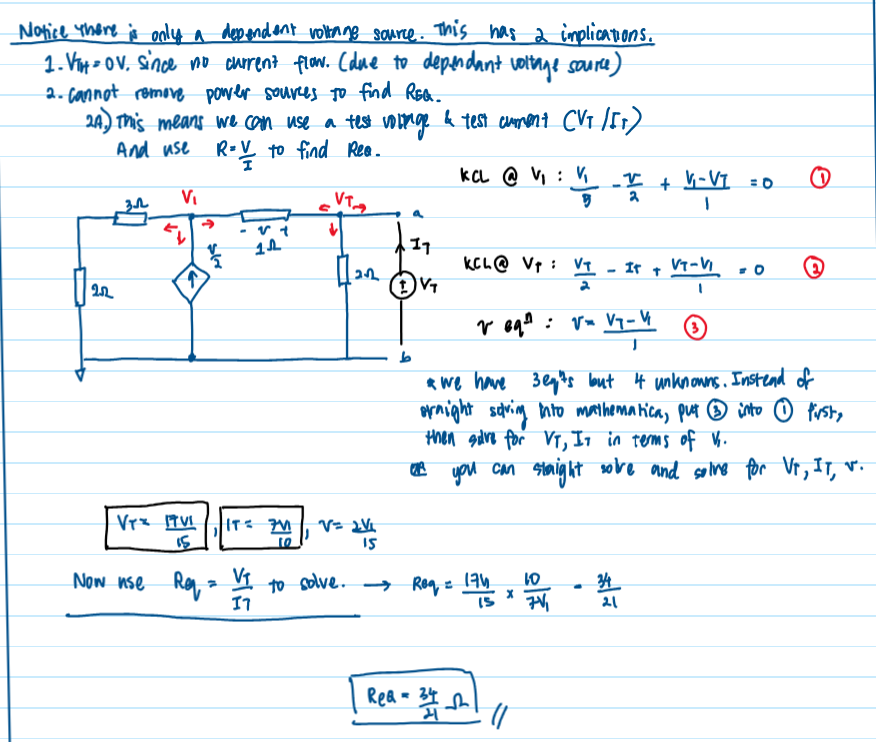 Notice there is only a dependent voltage source. This has 2 implications.
1. VTH = 0V. Since no current flow. (due to dependant voltage source)
2. Cannot remove power sources to find REQ.
2A) This means we can use a test voltage & test current (VT/IT)
And use R = V/I to find Req.
KCL @ V1 : V1/5 - v/2 + (V1-VT)/1 = 0 ①
3Ω V1 VT a
- v + 1Ω
v/2
2Ω 2Ω IT
VT
b
KCL @ VT : VT/2 - IT + (VT-V1)/1 = 0 ②
v eqⁿ : v = (VT-V1)/1 ③
* we have 3 eqⁿs but 4 unknowns. Instead of
straight solving into mathematica, put ③ into ① first,
then solve for VT, IT in terms of V1.
OR you can straight solve and solve for VT, IT, v.
VT = 17V1/15 , IT = 7V1/10 , v = 2V1/15
Now use Req = VT/IT to solve. → Req = 17V1/15 × 10/7V1 = 34/21
REQ = 34/21 Ω //